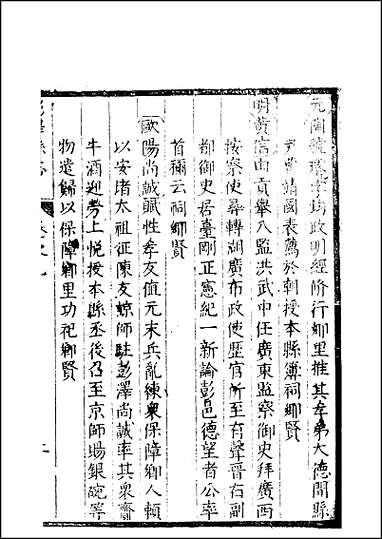 元陶 字均政明經飭行鄉里推其孝弟大德間縣
尹黃請國表薦於朝授本縣簿祠鄉賢
明黃信由貢舉入監洪武中任廣東監察御史拜廣西
按察使尋轉湖廣布政使歷官所至有聲晉右副
都御史居臺剛正憲紀一新論彭邑德望者公率
首稱云祠鄉賢
歐陽尚誠賦性孝友值元末兵亂練衆保障鄉人賴
以安堵太祖征陳友諒師駐彭澤尚誠率其衆齎
牛酒迎勞上悅授本縣丞後召至京師賜銀碗等
物遣歸以保障鄉里功祀鄉賢